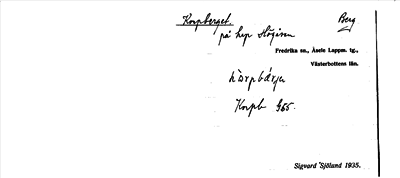 Korpberget. Berg
på hep Högåsen
Fredrika sn., Åsele Lappm. tg.,
Västerbottens län.
Korpb 955.
Sigvard Sjölund 1935.